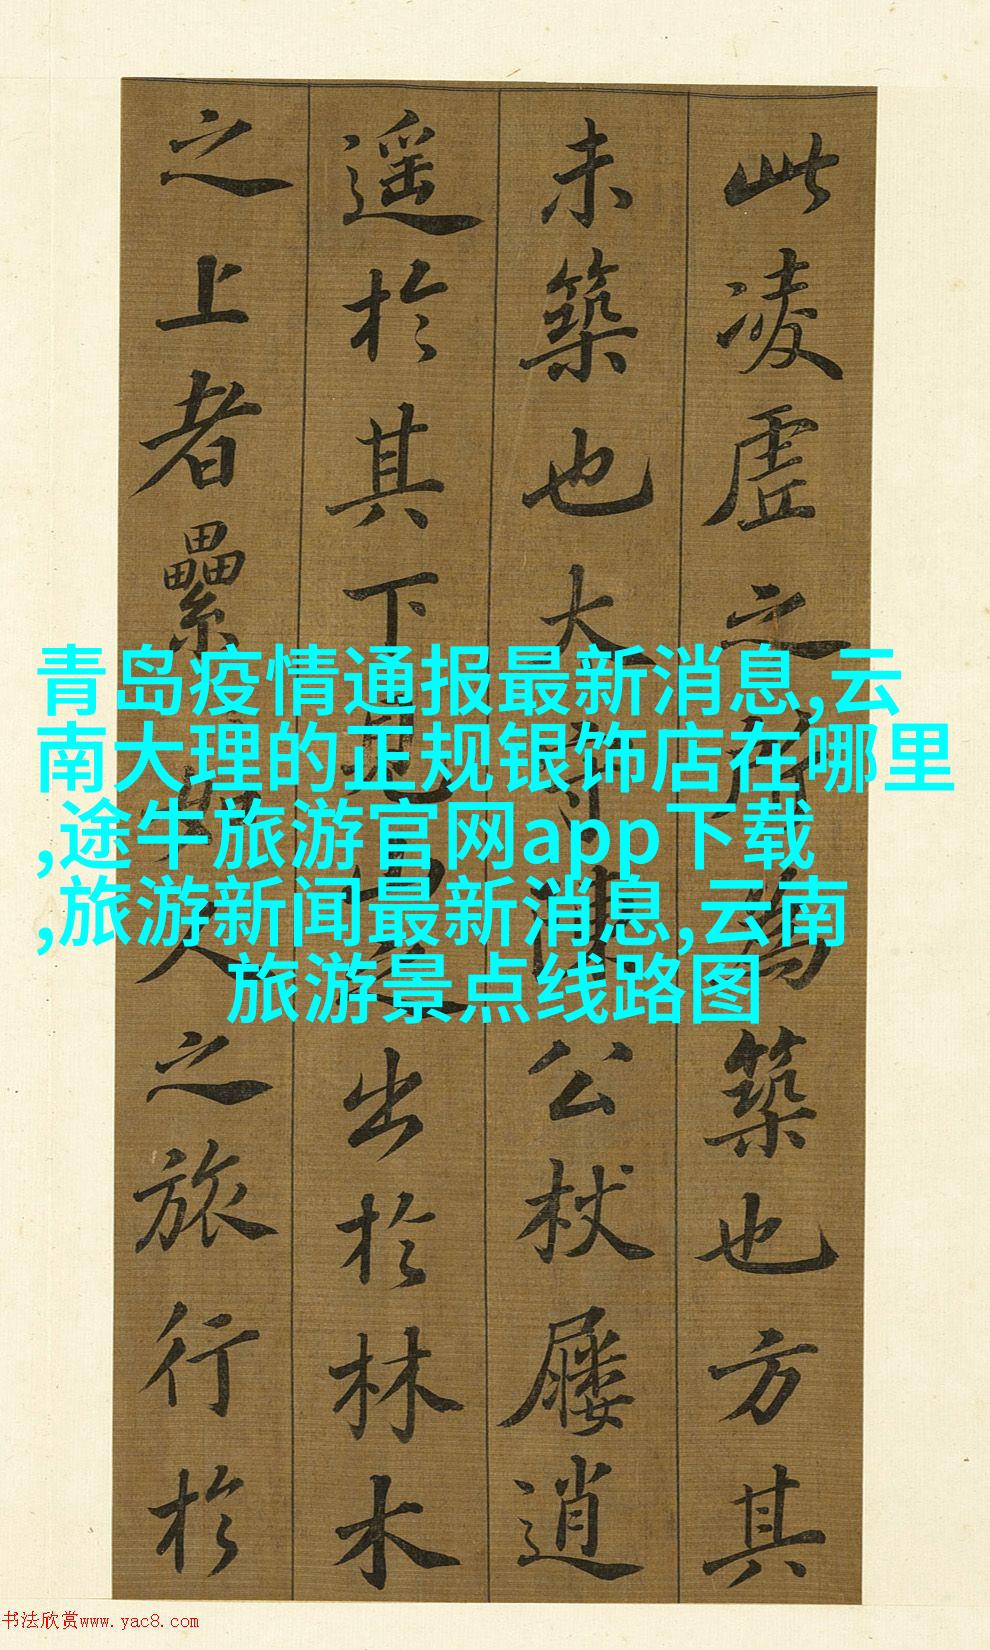 此凌虛之所為築也方其
未築也大守陳公杖屨逍
遥於其下見山之出於林木
之上者纍如人之旅行於
青岛疫情通报最新消息,云
南大理的正规银饰店在哪里
,途牛旅游官网app下载
,旅游新闻最新消息,云南
旅游景点线路图
书法欣赏www.yac8.com